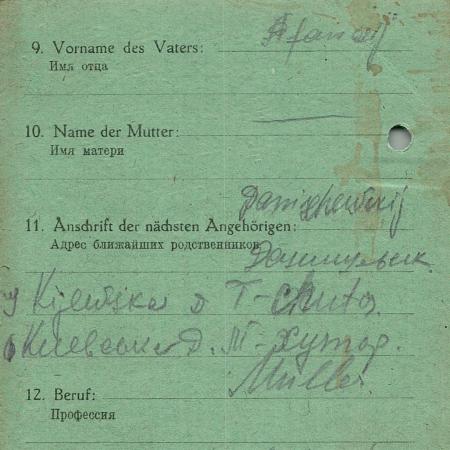 9. Vorname des Vaters: Afanasij
Имя отца
10. Name der Mutter:
Имя матери
11. Anschrift der nächsten Angehörigen:
Адрес ближайших родственников
Kijewska T-chutor
Киевская д. М-хутор.
Müller
12. Beruf:
Профессия